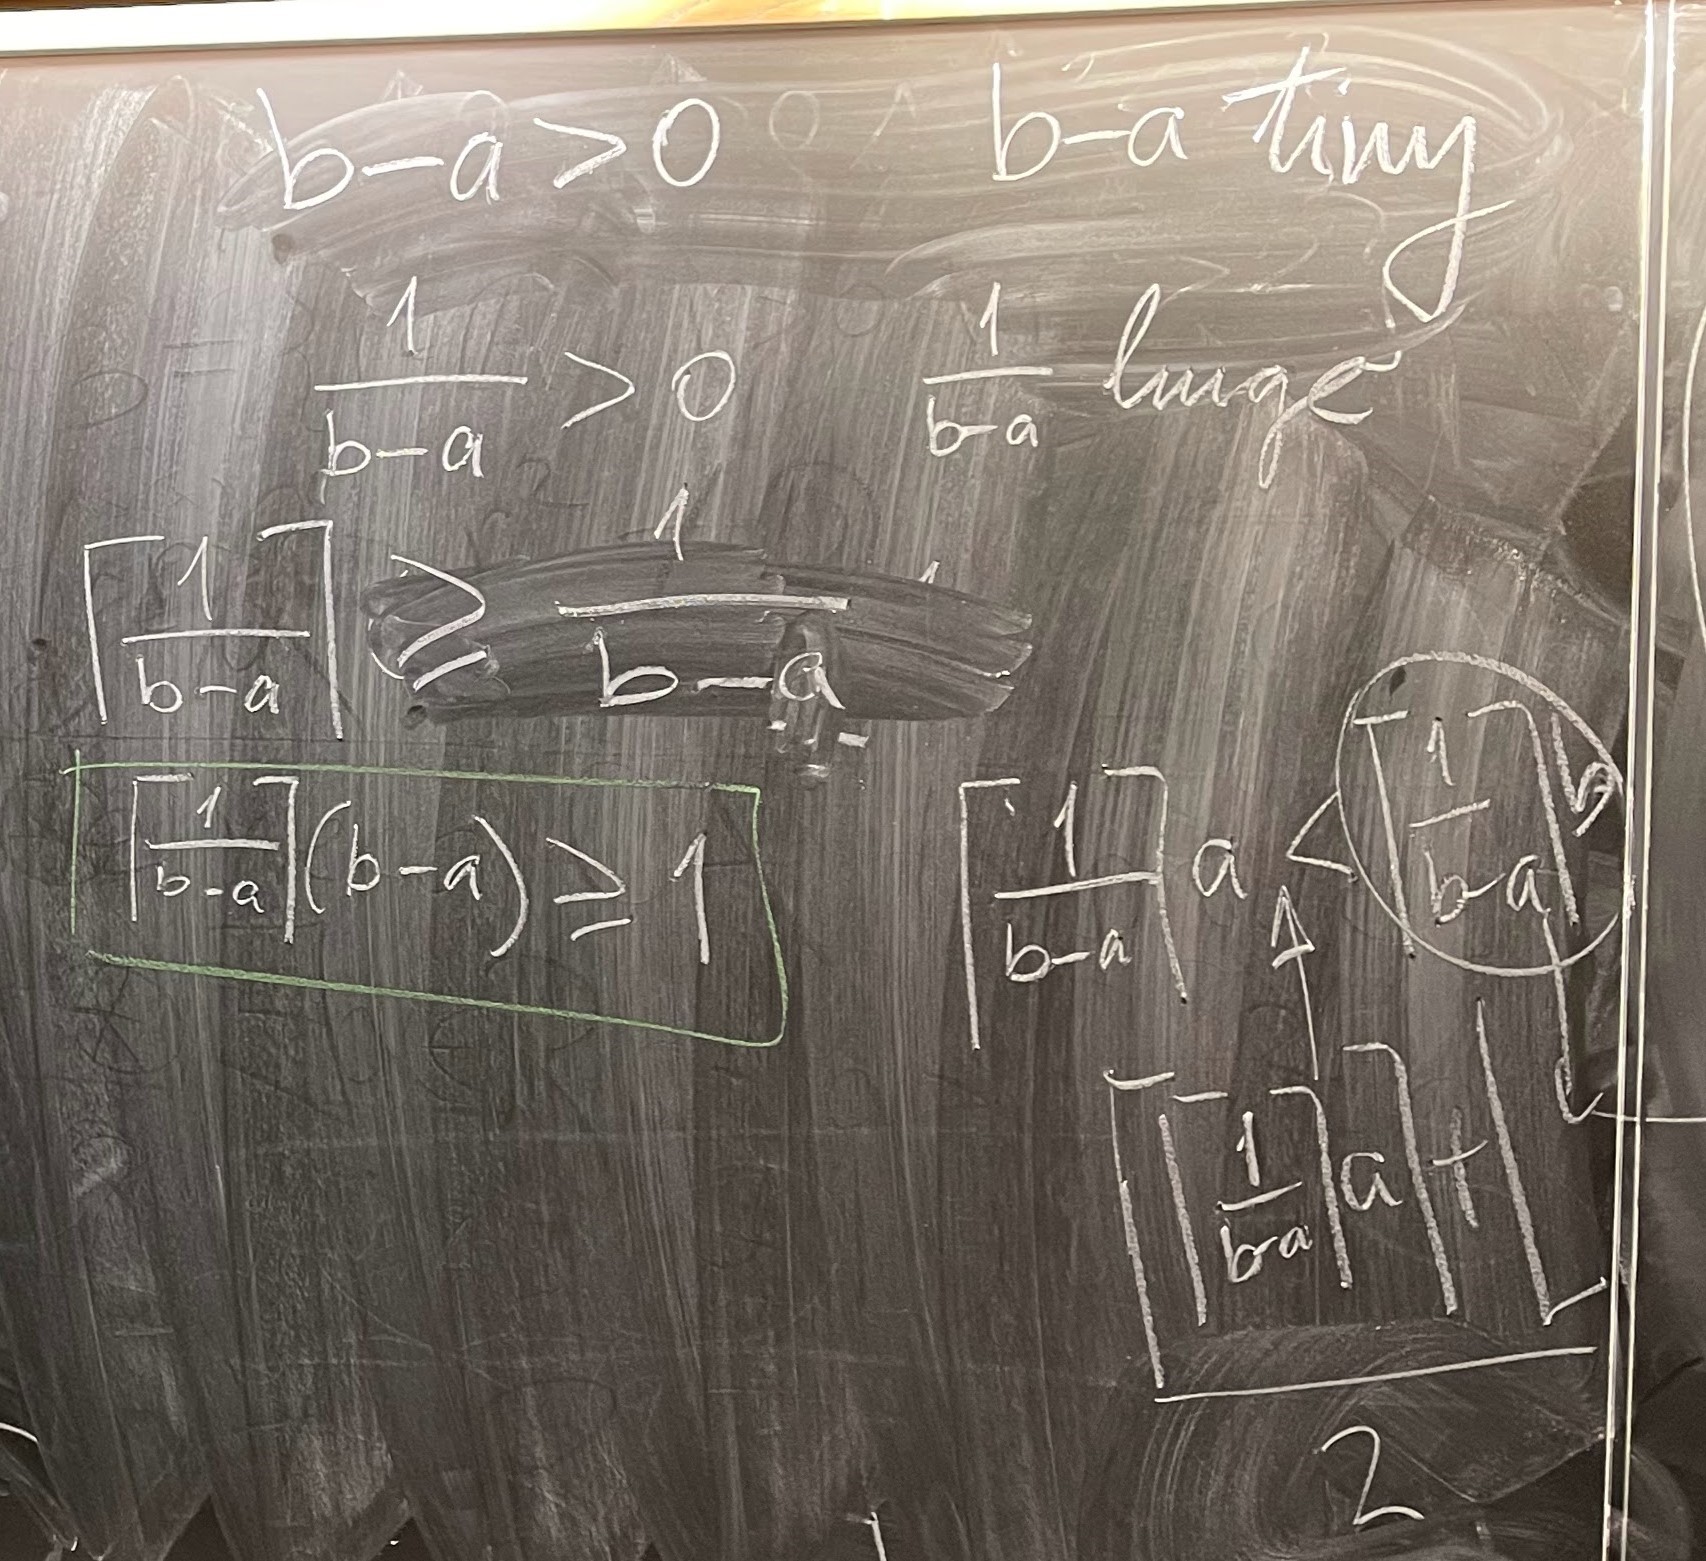 b-a>0 b-a tiny
1/(b-a) > 0 1/(b-a) huge
⌈1/(b-a)⌉ ≥ 1/(b-a)
⌈1/(b-a)⌉(b-a) ≥ 1
⌈1/(b-a)⌉a < ⌈1/(b-a)⌉b
⌈⌈1/(b-a)⌉a⌉+⌊
2